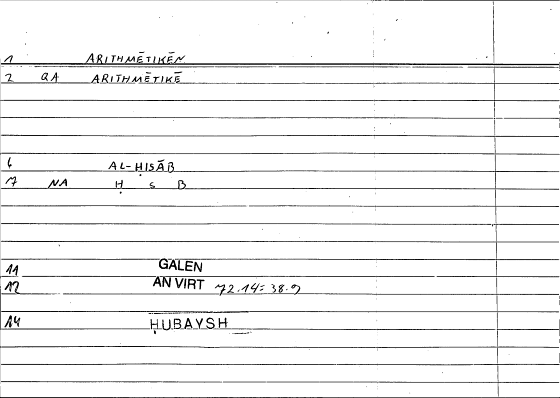 1 ARITHMĒTIKĒN
2 QA ARITHMĒTIKĒ
6 AL-ḤISĀB
7 NA Ḥ S B
11 GALEN
12 AN VIRT 72.14=38.9
14 ḤUBAYSH